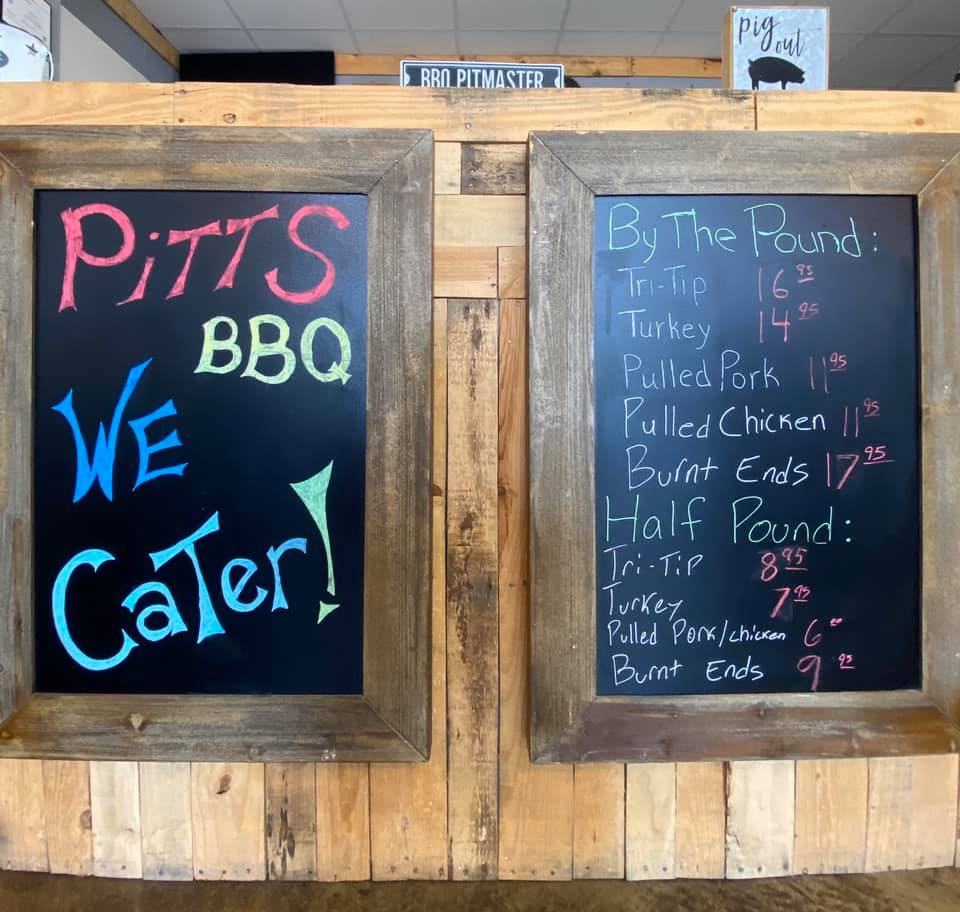 pig
out
BBQ PITMASTER
PiTTS
BBQ
WE
CaTer!
By The Pound:
Tri-Tip 16.95
Turkey 14.95
Pulled Pork 11.95
Pulled Chicken 11.95
Burnt Ends 17.95
Half Pound:
Tri-Tip 8.95
Turkey 7.95
Pulled Pork/chicken 6
Burnt Ends 9.95